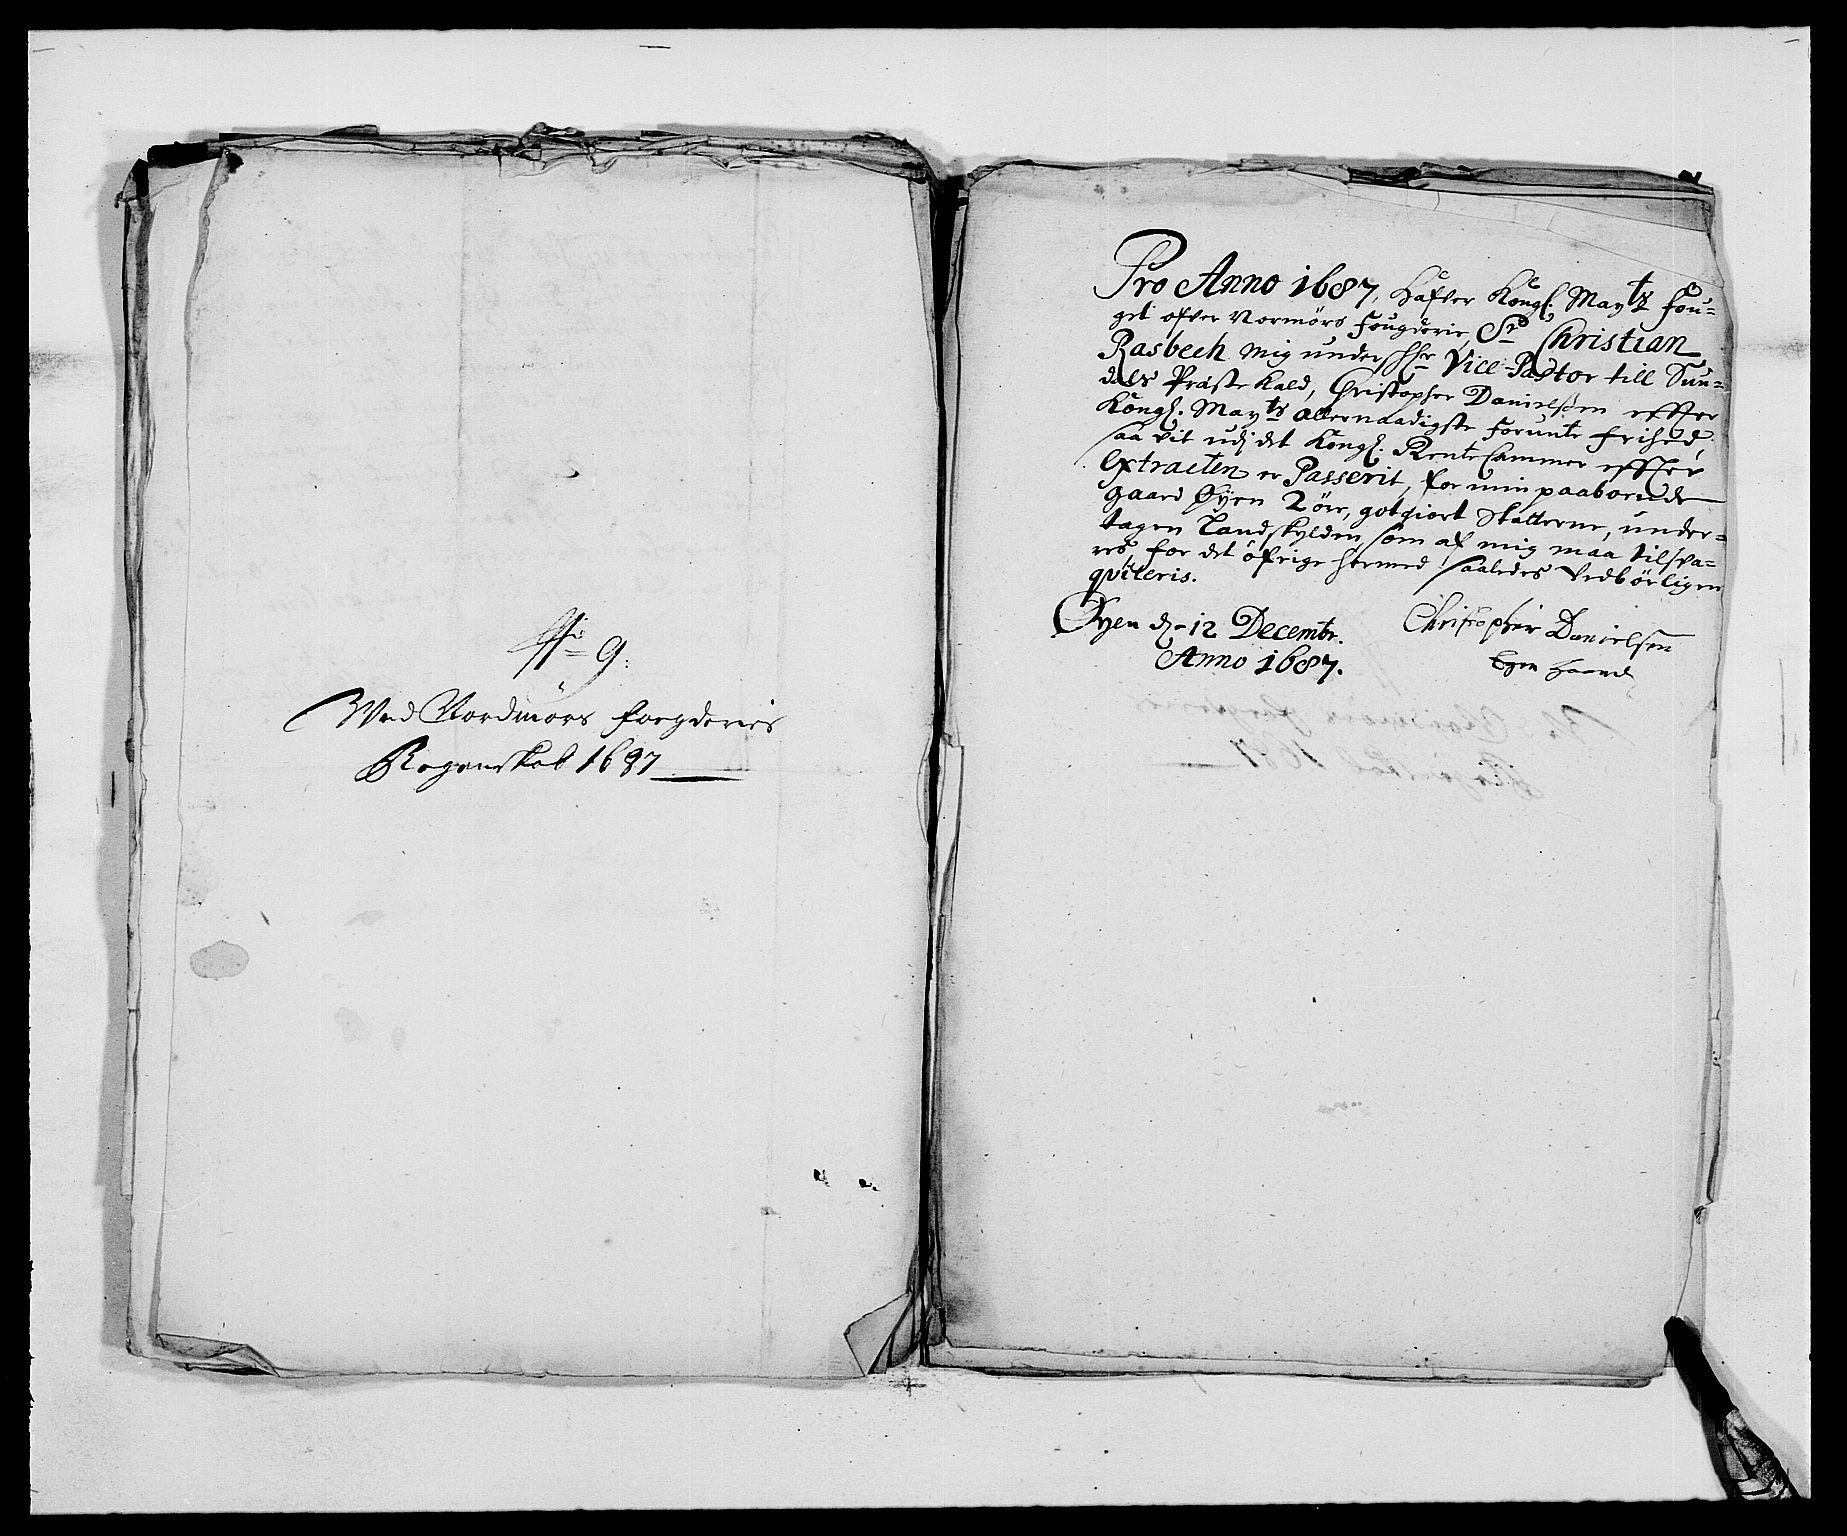 No 9:
Wed Nordmörs fougderies
Regenskab 1687
Pro Anno 1687, hafver Kongl. Mayts Fou=
get ofver Normörs Fougderie, Sr Christian
Rasbech mig underschr Vice-Pastor till Sun=
dals Præste kald, Christopher Danielsßen effter
Kongl. Mayts allernaadigste forunte frihed,
saa vit udj det Kongl. Rentekammer effter
Extracten er Passerit, for min paaboende
gaard Øyen 2 öre, gotgiort Skatterne, under=
tagen Landskylden, som af mig maa tilsva=
res, for det öfrige hermed saaledes vedbörligen
qviteris.
Øyen d. 12 Decembr.
Anno 1687.
Christopher Danielsen
Egen haand